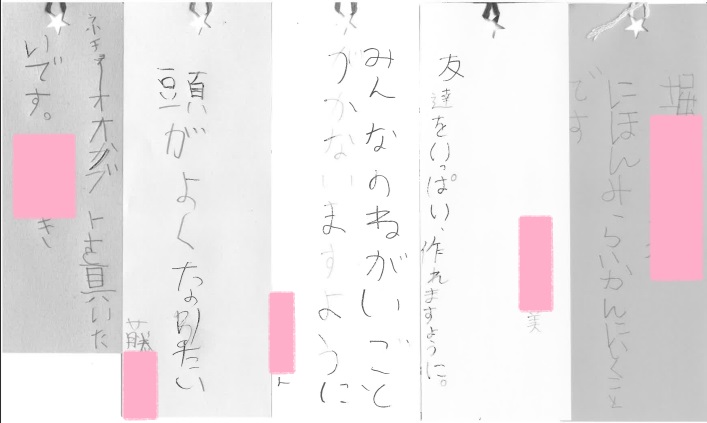 堀
にほんみらいかんにいくこと
です
友達をいっぱい、作れますように。
美
みんなのねがいごと
がかないますように
頭がよくなりたい
藤
ネキオオカブトを買いた
いです。
き